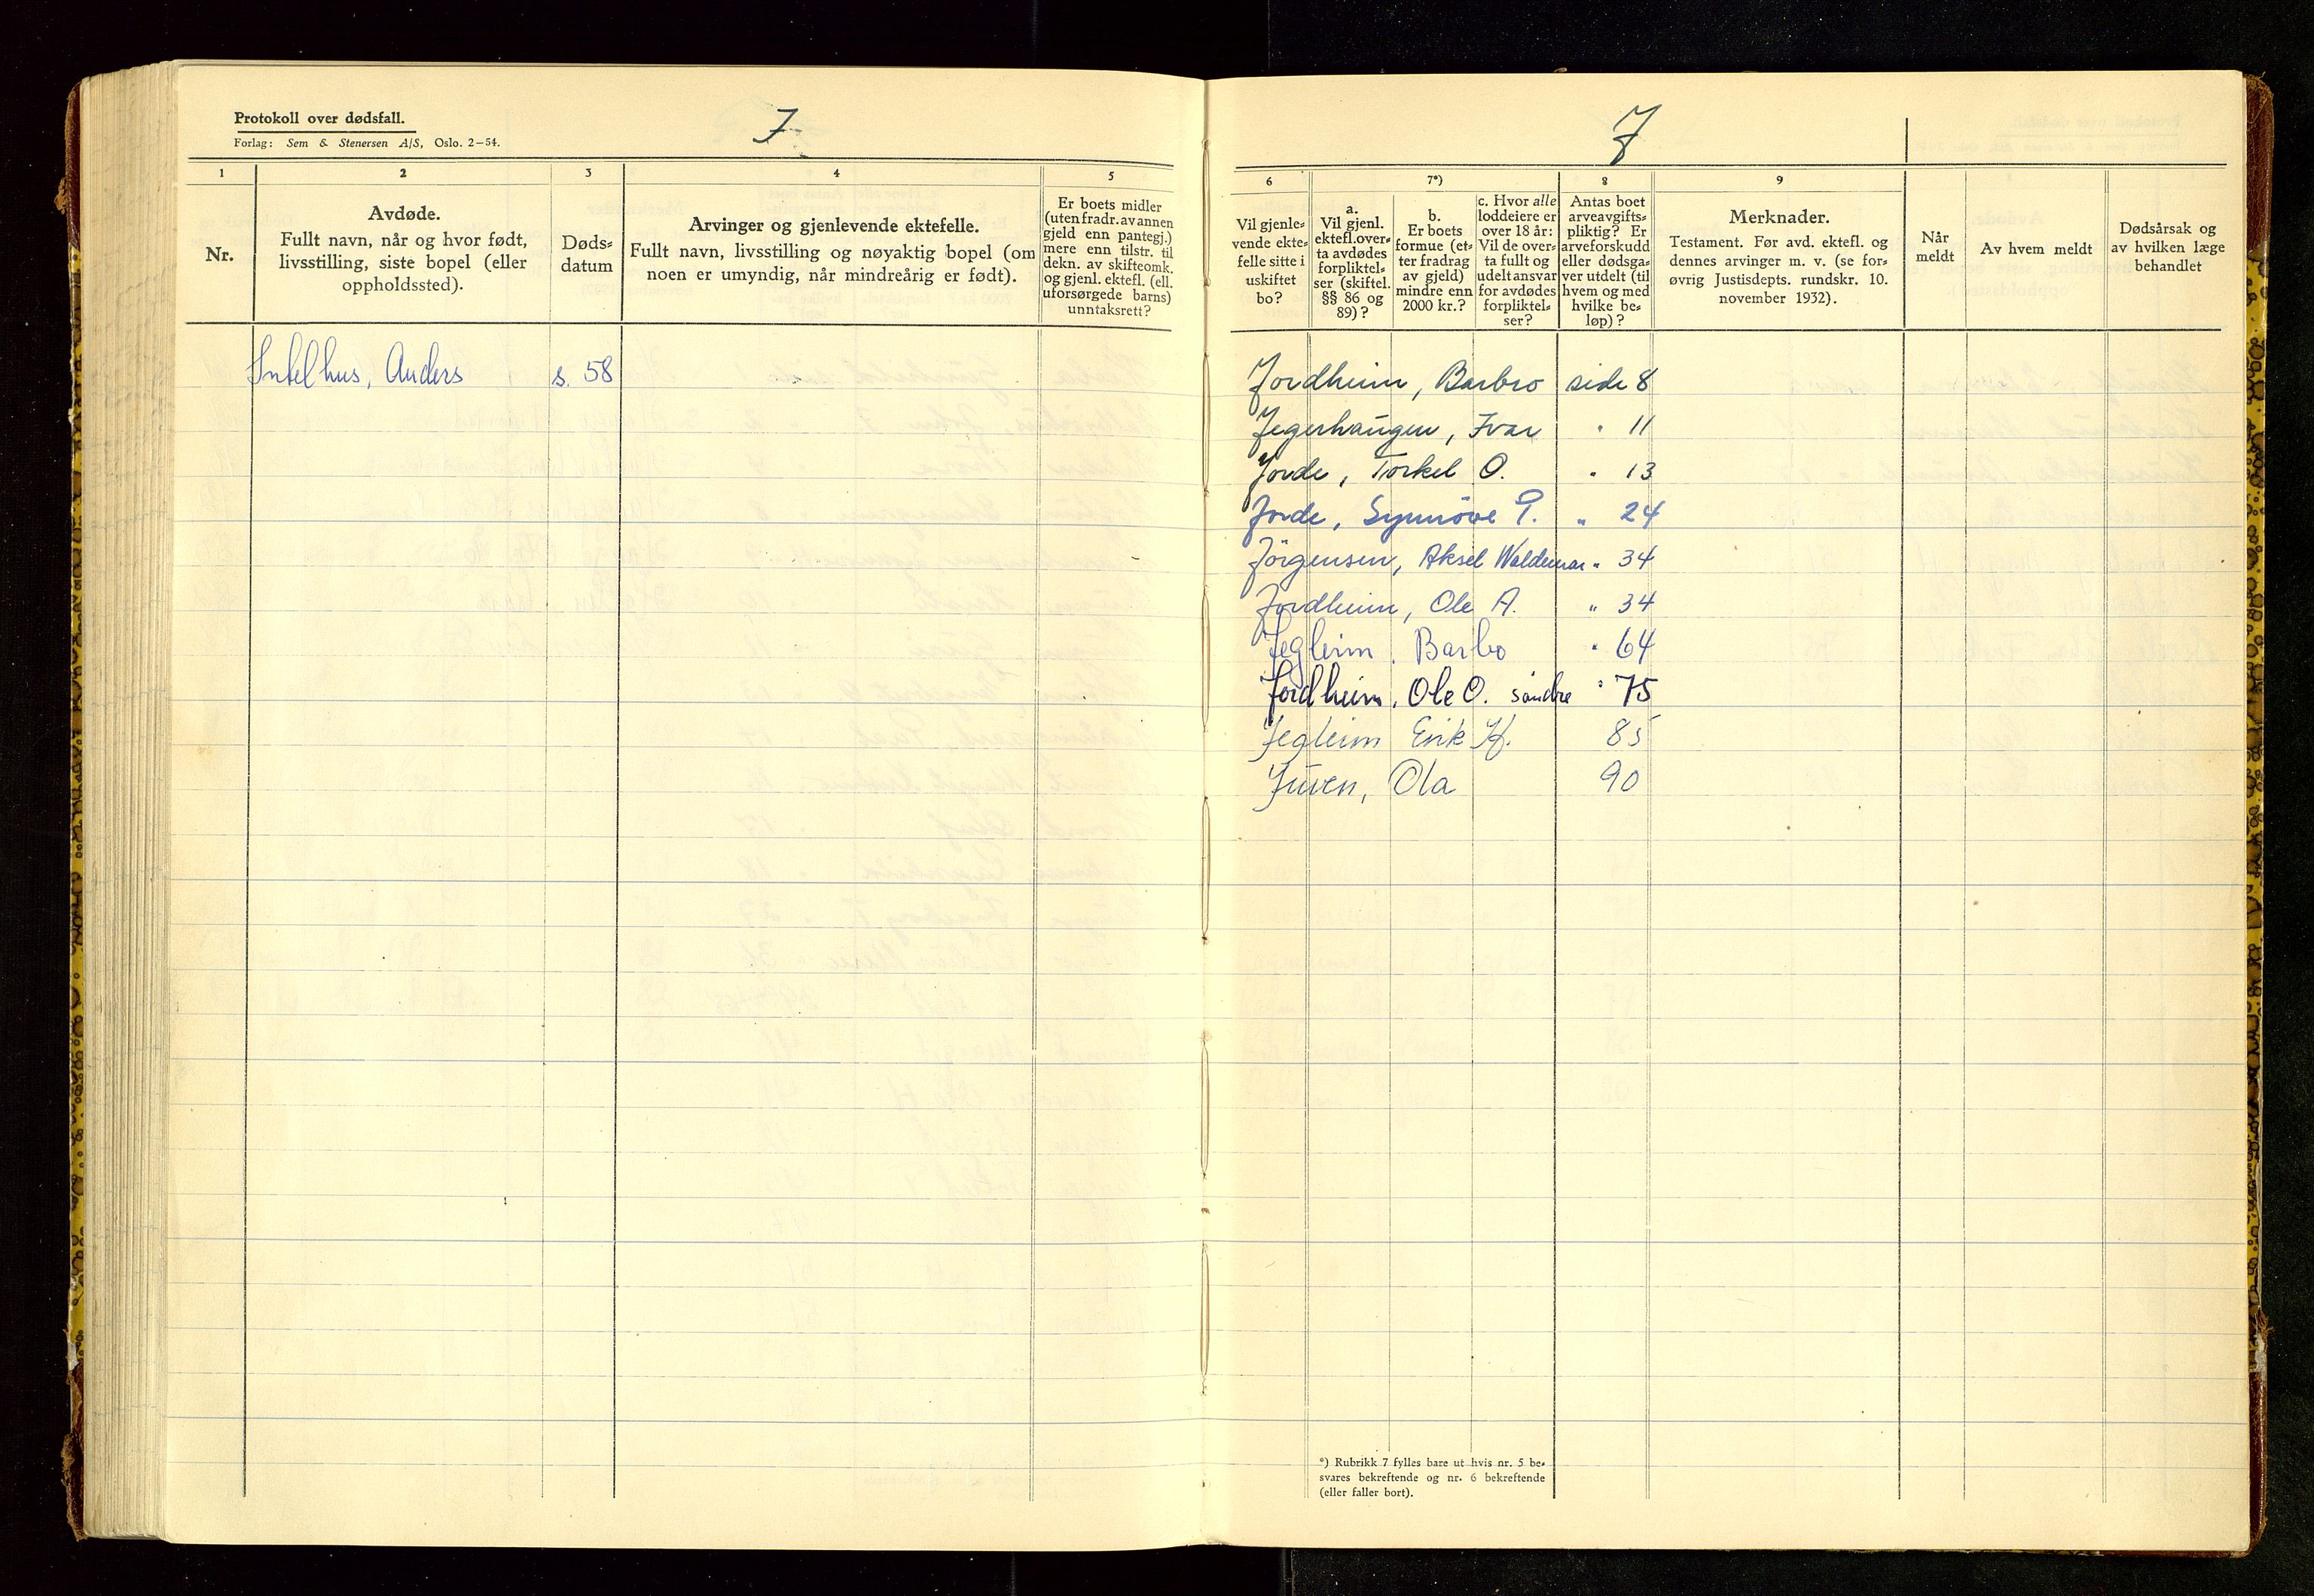 Protokoll over dødsfall.
Forlag: Sem & Stenersen A/S, Oslo. 2–54.
I
1
2
3
4
5
Nr.
Avdøde.
Fullt navn, når og hvor født,
livsstilling, siste bopel (eller
oppholdssted).
Døds=
datum
Arvinger og gjenlevende ektefelle.
Fullt navn, livsstilling og nøyaktig bopel (om
noen er umyndig, når mindreårig er født).
Er boets midler
(uten fradr. av annen
gjeld enn pantegj.)
mere enn tilstr. til
dekn. av skifteomk.
og gjenl. ektefl. (ell.
uforsørgede barns)
unntaksrett?
Intelhus, Anders s. 58
J
6
7*)
8
9
Vil gjenle=
vende ekte=
felle sitte i
uskiftet
bo?
a.
Vil gjenl.
ektefl. over=
ta avdødes
forpliktel=
ser (skiftel.
§§ 86 og
89)?
b.
Er boets
formue (et=
ter fradrag
av gjeld)
mindre enn
2000 kr.?
c. Hvor alle
loddeiere er
over 18 år:
Vil de over=
ta fullt og
udelt ansvar
for avdødes
forpliktel=
ser?
Antas boet
arveavgifts=
pliktig? Er
arveforskudd
eller dødsga=
ver utdelt (til
hvem og med
hvilke be=
løp)?
Merknader.
Testament. Før avd. ektefl. og
dennes arvinger m. v. (se for=
øvrig Justisdepts. rundskr. 10.
november 1932).
Når
meldt
Av hvem meldt
Dødsårsak og
av hvilken læge
behandlet
Jordheim, Barbro side 8
Jegerhaugen, Ivar " 11
Jorde, Torkel O. " 13
Jorde, Synnöve T. " 24
Jörgensen, Aksel Waldemar " 34
Jordheim, Ole A. " 34
Jegleim, Barbo " 64
Jordheim, Ole O. söndre " 75
Jegleim Erik H. 85
Juven, Ola 90
*) Rubrikk 7 fylles bare ut hvis nr. 5 be=
svares bekreftende og nr. 6 bekreftende
(eller faller bort).